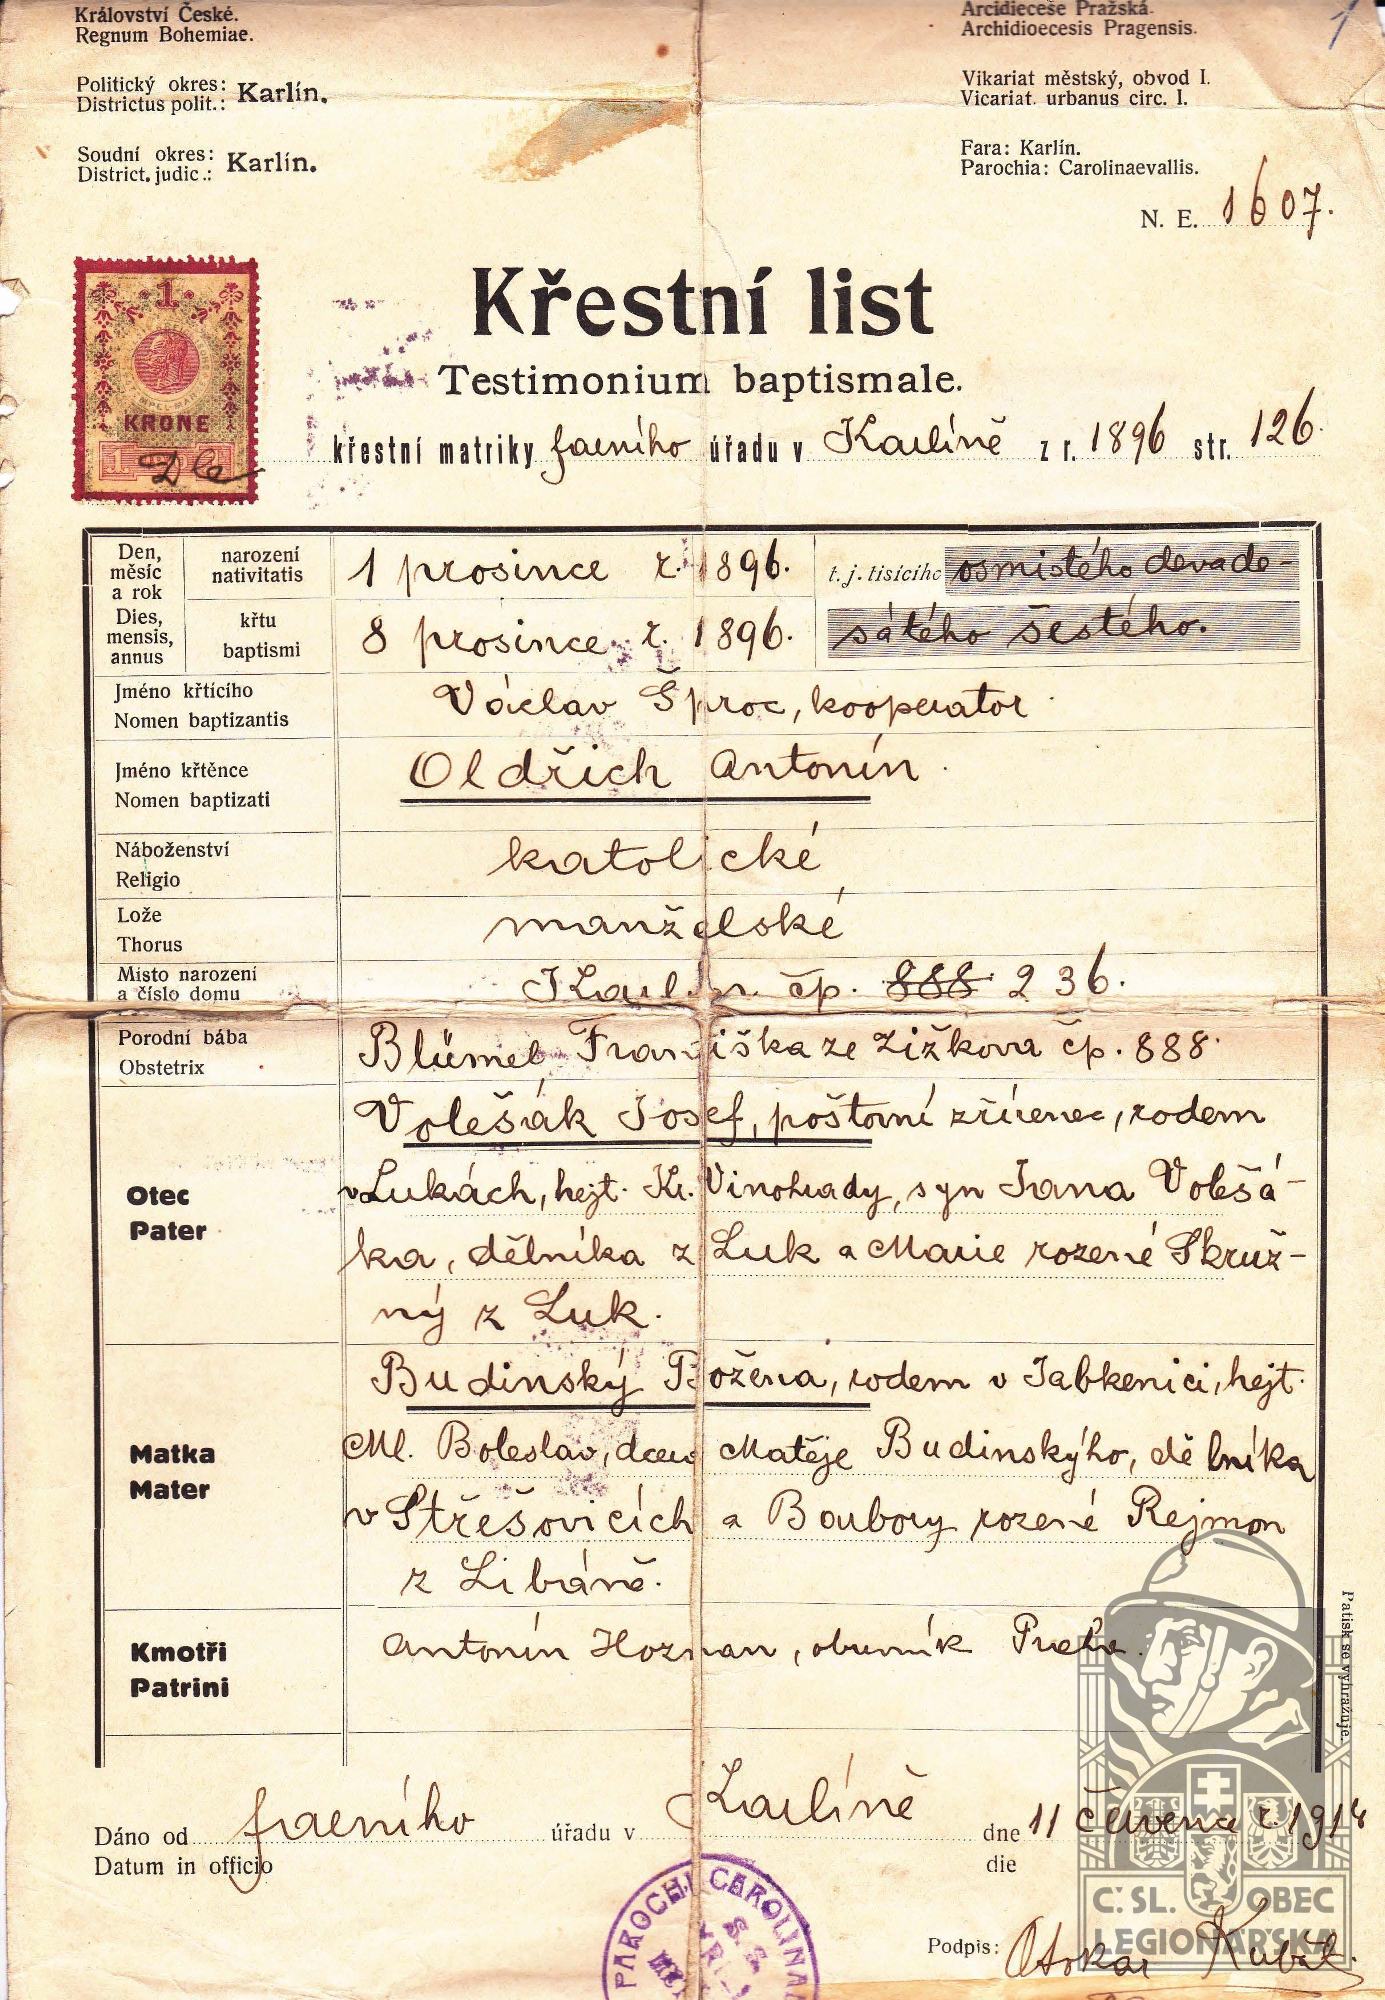 Království České.
Regnum Bohemiae.
Politický okres: Karlín.
Districtus polit.:
Soudní okres: Karlín.
District. judic.:
Arcidiecese Pražská.
Archidioecesis Pragensis.
Vikariat městský, obvod I.
Vicariat. urbanus circ. I.
Fara: Karlín.
Parochia: Carolinaevallis.
N. E. 1607.
1
KRONE
Křestní list
Testimonium baptismale.
křestní matriky farního úřadu v Karlíně z r. 1896 str. 126.
Den, měsíc a rok
Dies, mensis, annus
narození
nativitatis
1 prosince r. 1896. t. j. tisícího osmistého devade-
křtu
baptismi
8 prosince r. 1896. sátého šestého.
Jméno křtícího
Nomen baptizantis
Václav Šproc, kooperator
Jméno křtěnce
Nomen baptizati
Oldřich Antonín.
Náboženství
Religio
katolické
Lože
Thorus
manželské
Místo narození
a číslo domu
Karlín čp. 888 236.
Porodní bába
Obstetrix
Blümel Františka ze Žižkova čp. 888.
Otec
Pater
Volešák Josef, poštovní zřízenec, rodem
v Lukách, hejt. Kr. Vinohrady, syn Jana Volešá-
ka, dělníka z Luk a Marie rozené Skruž-
ný z Luk.
Matka
Mater
Budinský Božena, rodem v Jabkenici, hejt.
Ml. Boleslav, dcera Matěje Budinskýho, dělníka
v Střešovicích a Barbory rozené Rejmon
z Libáně.
Kmotři
Patrini
Antonín Hozman, obuvník Praha.
Patisk se vyhrazuje.
Dáno od farního úřadu v Karlíně dne 11 června r. 1914
Datum in officio die
Podpis: Otokar
PAROCHI CAROLINA
Č. SL. OBEC
LEGIONÁŘSKÁ